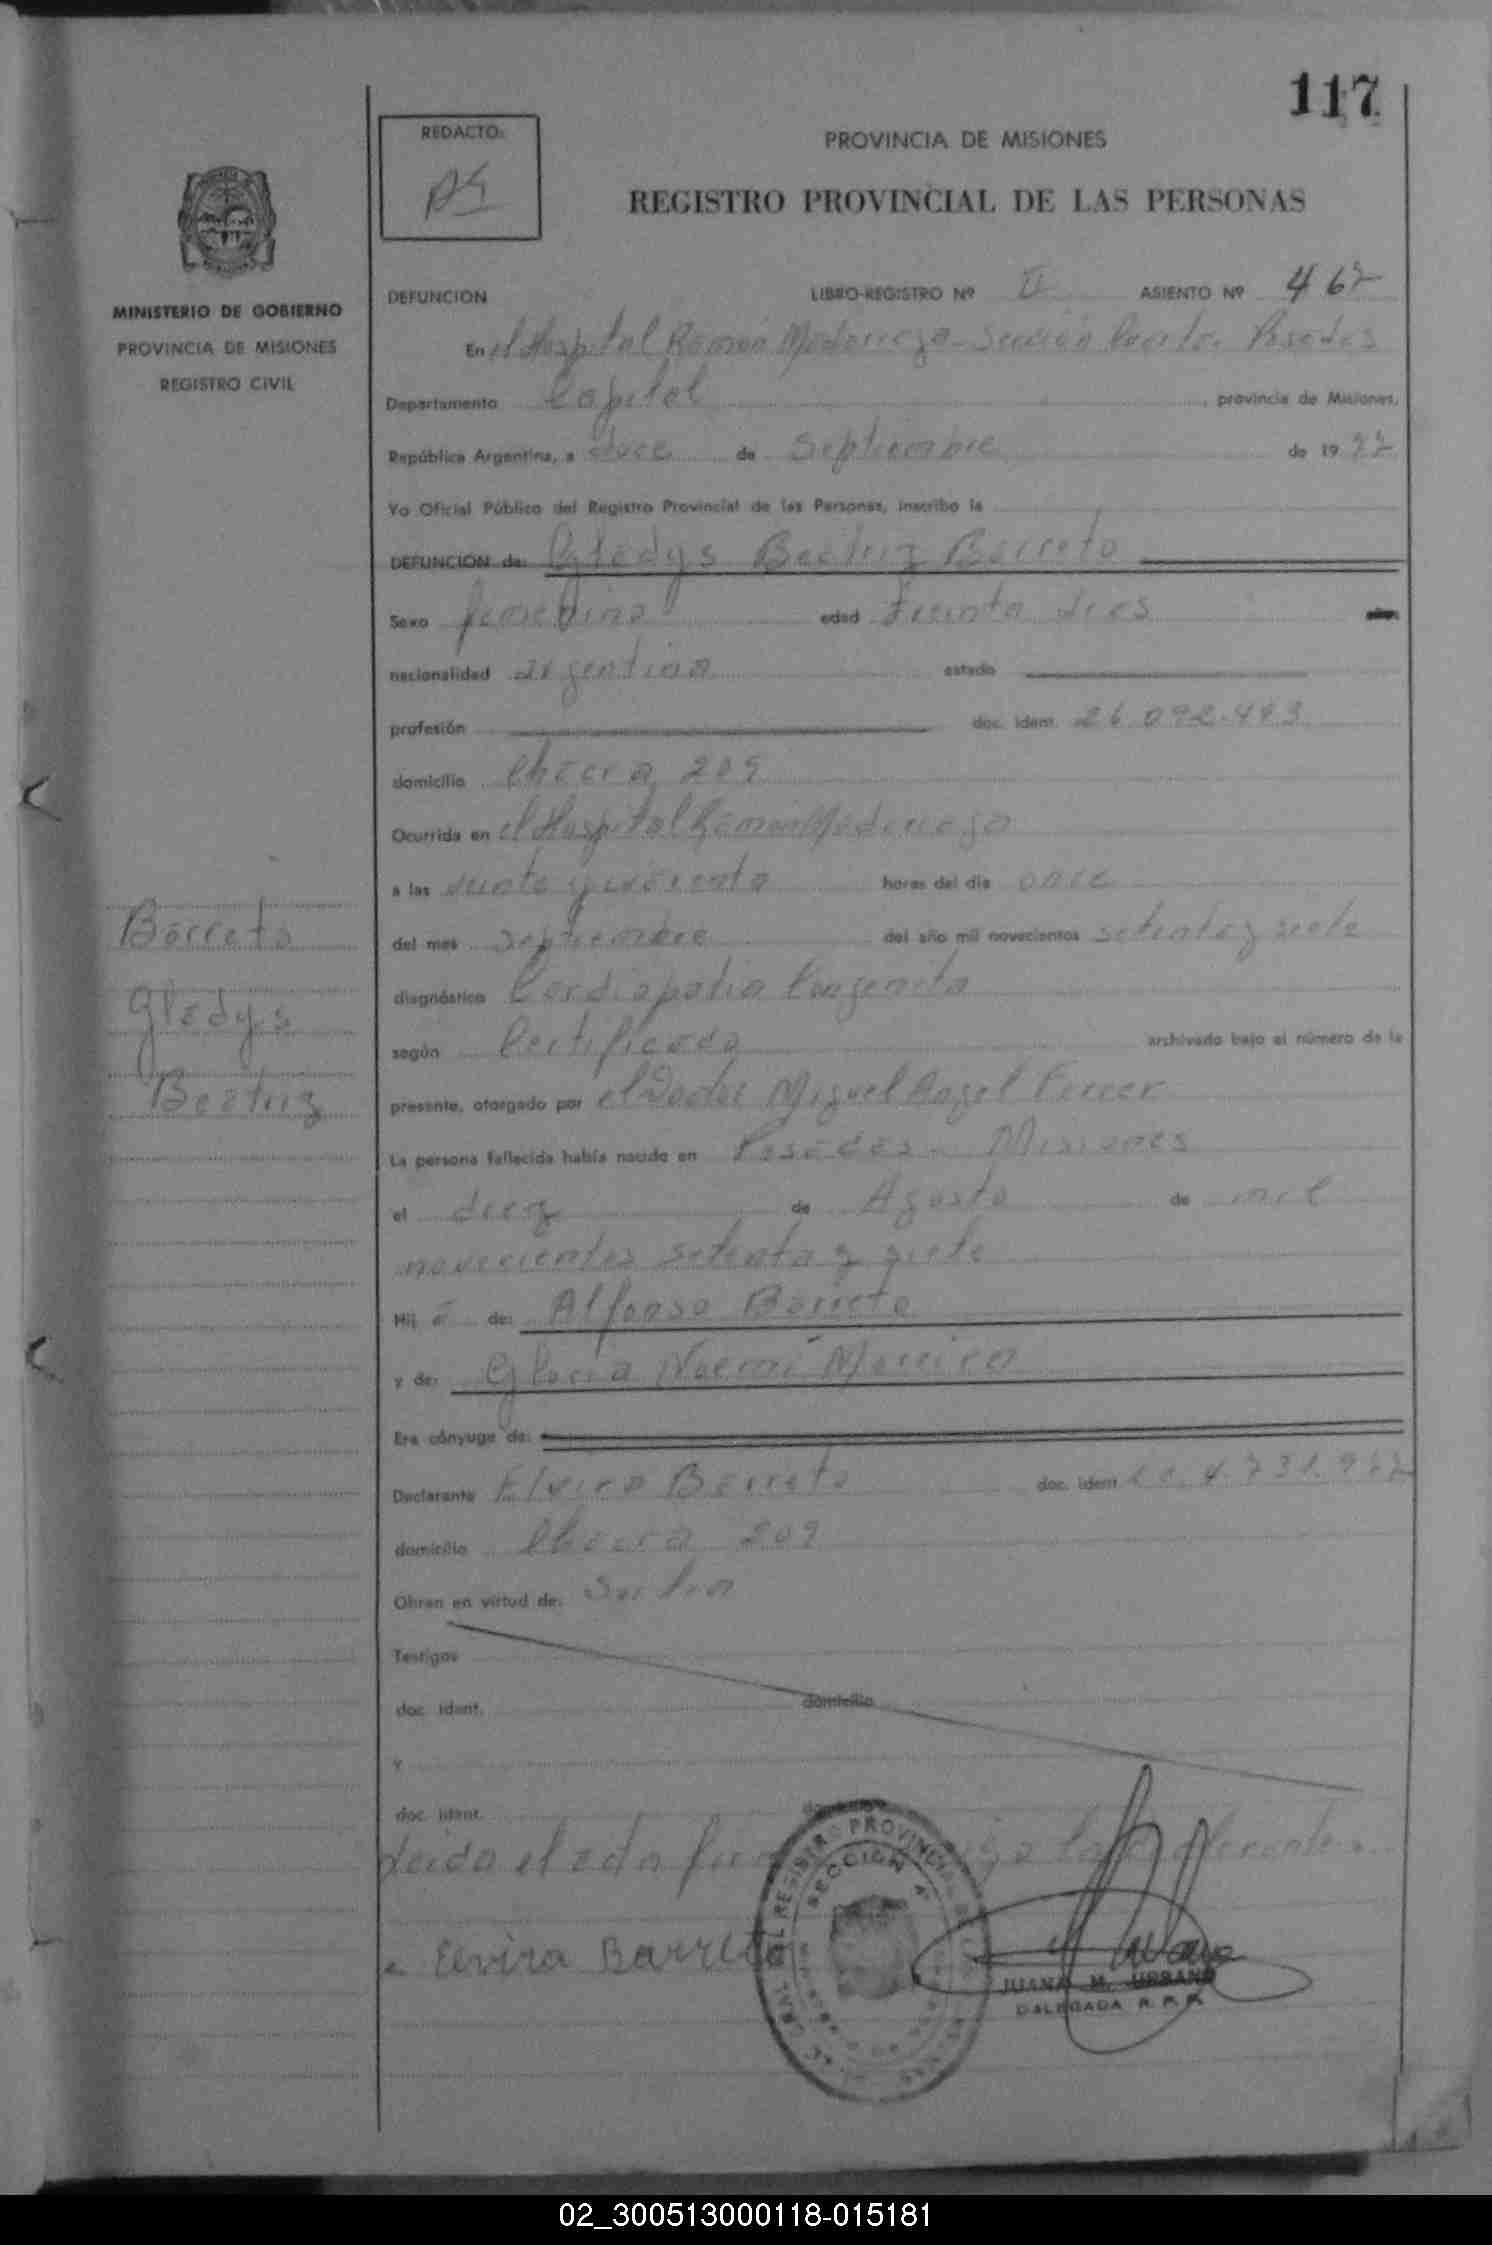 117
REDACTO:
PROVINCIA DE MISIONES
REGISTRO PROVINCIAL DE LAS PERSONAS
MINISTERIO DE GOBIERNO
PROVINCIA DE MISIONES
REGISTRO CIVIL
DEFUNCION LIBRO-REGISTRO Nº II ASIENTO Nº 467
En el Hospital Ramón Madariaga - Sección Cuarta. Posadas
Departamento Capital, provincia de Misiones,
República Argentina, a doce de Septiembre de 1977
Yo Oficial Público del Registro Provincial de las Personas, inscribo la
DEFUNCION de: Gladys Beatriz Barreto
Sexo femenino edad Treinta dias
nacionalidad argentina estado
profesión doc. ident. 26.092.443
domicilio Chacra 209
Ocurrida en el Hospital Ramón Madariaga
a las veinte y cuarenta horas del día once
del mes septiembre del año mil novecientos setenta y siete
diagnóstico Cardiopatia Congenita
según Certificado archivado bajo el número de la
presente, otorgado por el Doctor Miguel Angel Ferrer
La persona fallecida había nacido en Posadas - Misiones
el diez de Agosto de mil
novecientos setenta y siete
Hij a de: Alfonso Barreto
y de: Gloria Noemí Moreira
Era cónyuge de:
Declarante Elvira Barreto doc. ident. L.C. 4.731.977
domicilio Chacra 209
Obran en virtud de:
Testigos
doc. ident. domicilio
y
doc. ident.
Leida el acta la declarante.
Elvira Barreto
Barreto
Gladys
Beatriz
REGISTRO PROVINCIAL
SECCION 4ª
JUANA M. URBANO
DALEGADA R. P. P.
02_300513000118-015181